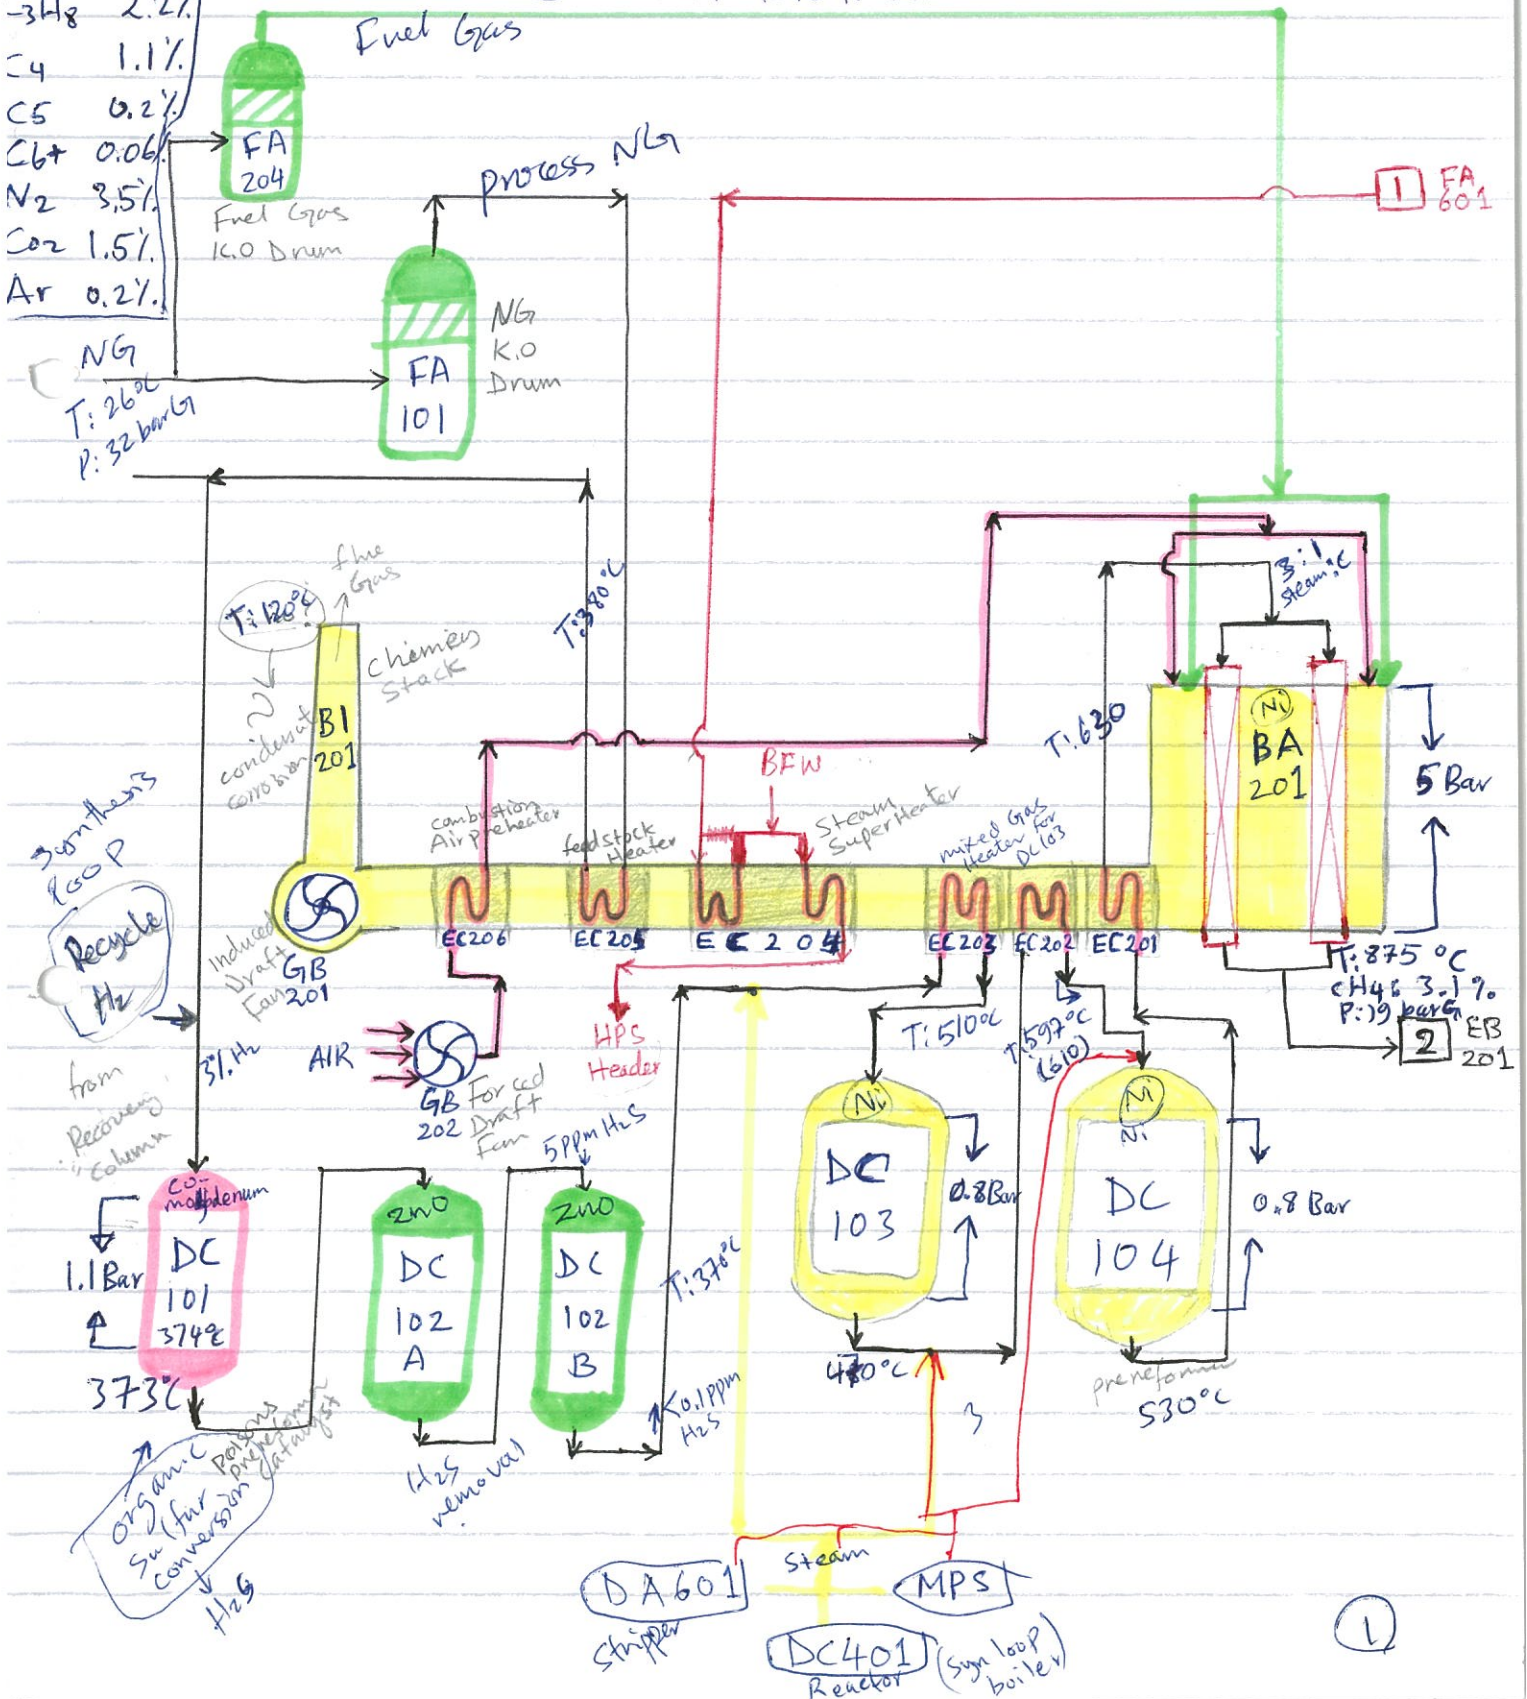 -3H8 2.2%
C4 1.1%
C5 0.2%
C6+ 0.06%
N2 3.5%
Co2 1.5%
Ar 0.2%
Fuel Gas
FA
204
Fuel Gas
K.O Drum
process NG
1
FA
601
NG
K.O
Drum
FA
101
NG
T: 26°C
P: 32 barG
flue
Gas
T: 120°C
chemiens
Stack
condensate
corrosion
BI
201
T: 380°C
3:1
steam:C
T: 630
Ni
BA
201
5 Bar
BFW
combustion
Air preheater
feedstock
Heater
Steam
SuperHeater
mixed Gas
Heater for
DC103
EC206
EC205
EC204
EC203
EC202
EC201
synthesis
loop
Recycle
H2
Induced
Draft
Fan
GB
201
from
Recovery
Column
3% H2
AIR
GB
202
Forced
Draft
Fan
HPS
Header
T: 510°C
T: 597°C
(610)
T: 875 °C
CH4: 3.1%
P: 19 barG
2
EB
201
5ppm H2S
Co-
molybdenum
DC
101
374°C
1.1 Bar
373°C
ZnO
DC
102
A
ZnO
DC
102
B
T: 370°C
<0.1ppm
H2S
Ni
DC
103
0.8 Bar
Ni
DC
104
0.8 Bar
preneformer
530°C
3
organic
sulfur
conversion
H2S
poisons
prereform
catalyst
H2S
removal
Steam
DA601
stripper
MPS
DC401
Reactor
(Syn loop
boiler)
1